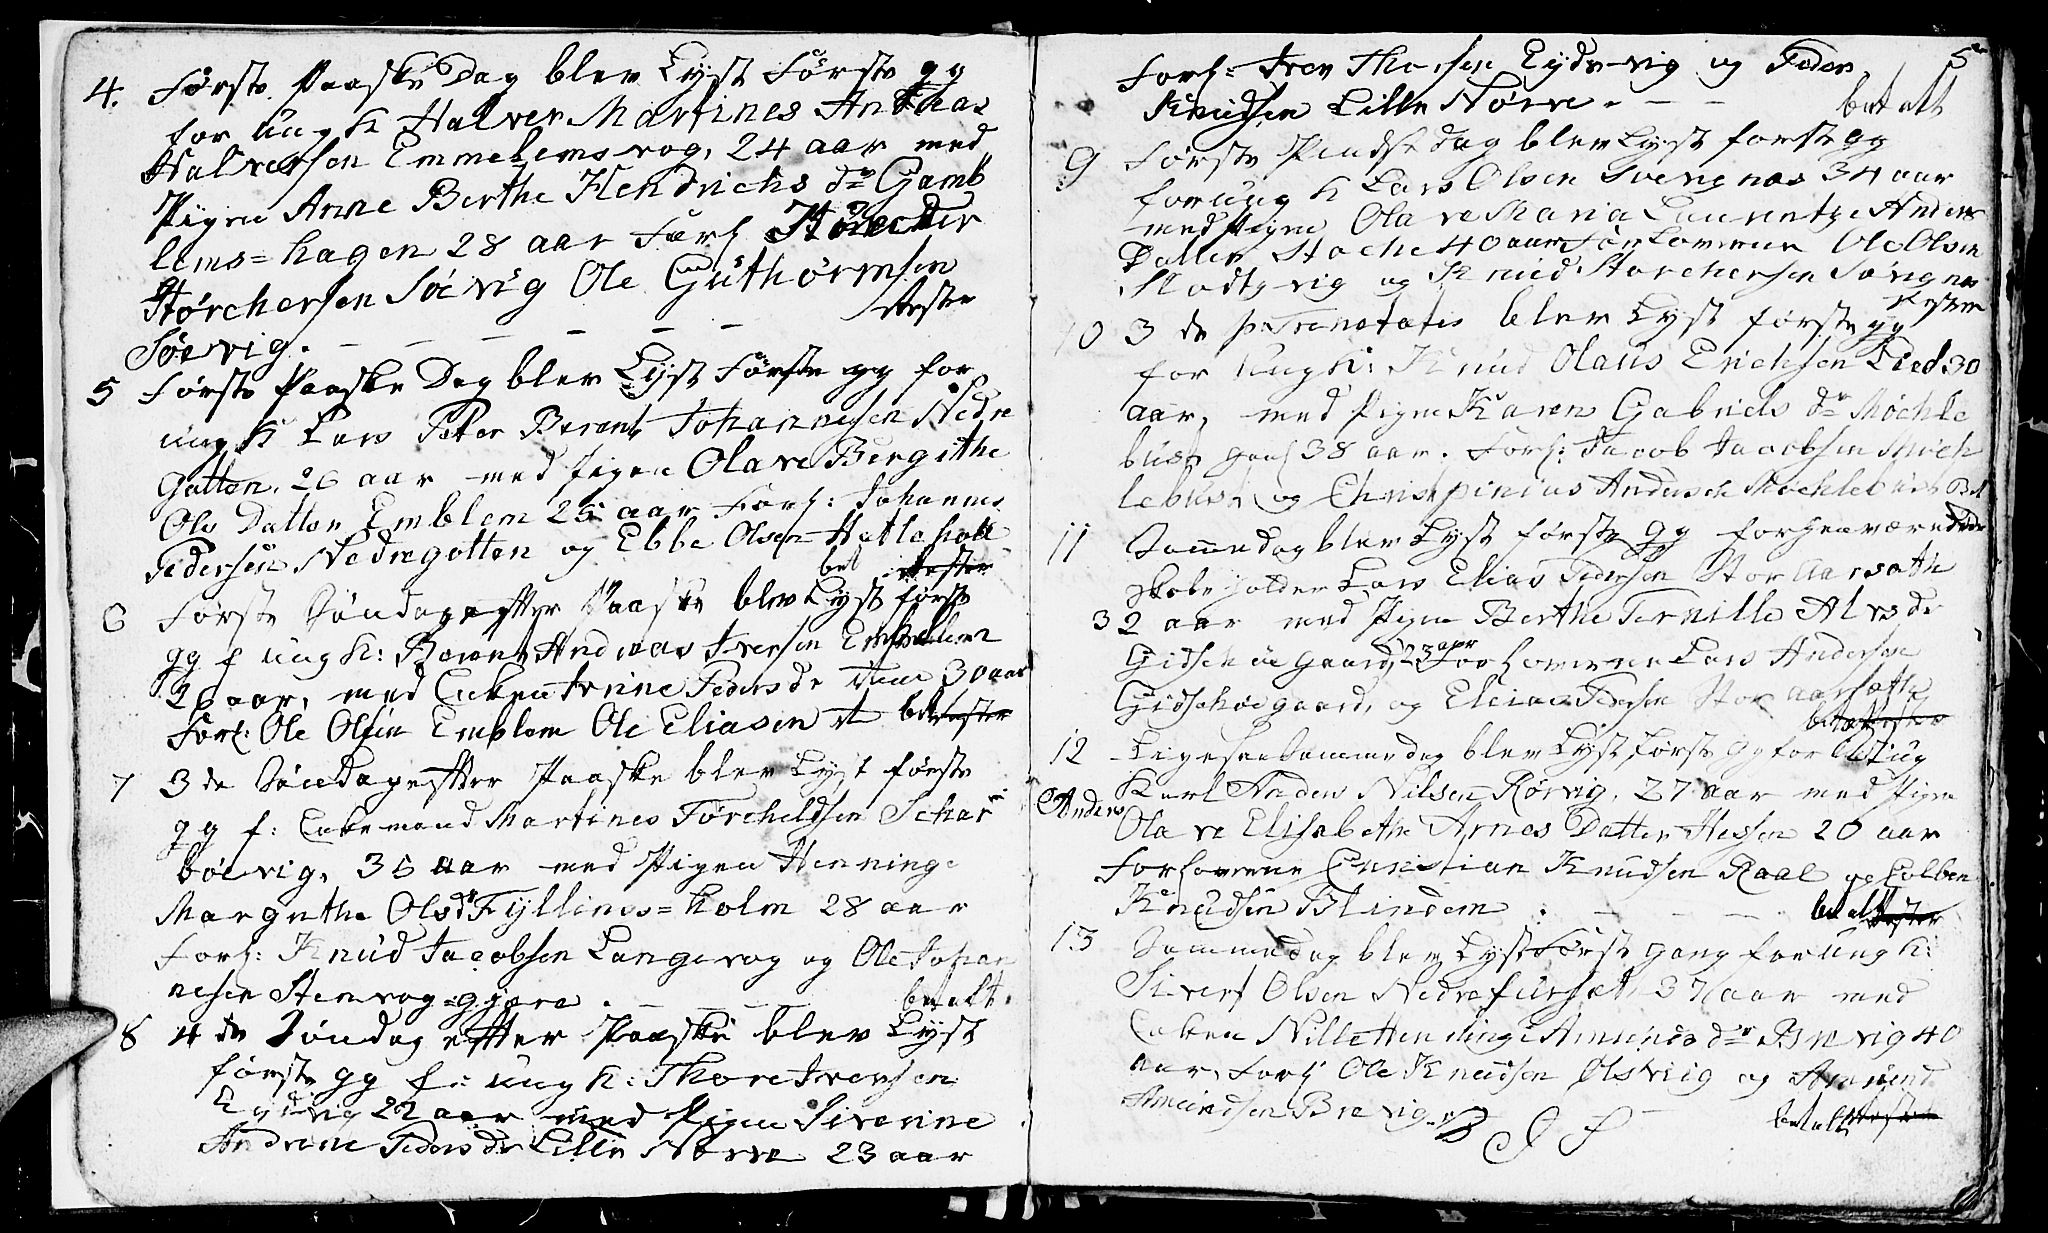 4. Første Paaske Dag blev Lyst Første gg
for ung K Halver Martines Andreas
Halversen Emmelemsvog, 24 aar med
Pigen Anne Berthe Hendrichs dr Gamb
lems=hagen 28 aar Forl
Størchersen Søevig Ole Guthørmsen
Søevig. — — — — Rester
5 Første Paaske Dag blev Lyst Første gg for
ung K Lars Peter Berent Johannesen Nedre
Gotten, 26 aar med Pigen Olave Bergithe
Ols Datter Emblem 25 aar Forl: Johannes
Pedersen Nedregotten og Ebbe Olsen Hatleholl
bet Rester
6 Første Søndag efter Paaske blev Lyst første
gg f ung K: Berent Andreas Iversen Emblem
26 aar, med Enken Irine Peders dr 30 aar
Forl: Ole Olsen Emblem Ole Eliasen bet Rester
7 3de Søndag efter Paaske blev Lyst første
gg f: Enkemand Martines Torcheldsen Schar
bøevig, 35 aar med Pigen Henninge
Margrethe Ols dr Fyllings=holm 28 aar
Forl: Knud Jacobsen Langevog og Ole Johan
nesen Stenvog=gjære. — — — betalt.
8 4de Søndag efter Paaske blev Lyst
første gg f: ung K: Thore Iversen
Eydsvig 22 aar med Pigen Siverine
Andrine Peders dr Lille Nørve 23 aar
5
Forl: Iver Thorsen Eydsvig og Peder
Knudsen Lille Nørve. — — betalt
9 Første Pindse dag blev Lyst første gg
for ung K Lars Olsen Svenignes 34 aar
med Pigen Olave Maria Laurentze Anders
Datter Stoche 40 aar Forlovern Ole Olsen
Slodtzvig og Knud Storchersen Sørignes
Rester
10 3de p Trenetatis blev Lyst første gg
for Ung K: Knud Olaus Erichsen Lied 30
aar, med Pigen Karen Gabriels dr Møchle
bust 38 aar. Forl: Jacob Jacobsen Møch
lebust og Chrispinius Andersen Møchlebust Bet
11 Samme dag blev Lyst første gg for henværende
Lars Elias Pedersen Stor aarsæth
32 aar med Pigen Berthe Pernille Alvs dr
Gidschøe gaard, 23 aar Forloverne Lars Andersen
Gidschøe gaard, og Elias Pedersen Stor aarsæth
bet Rester
12 Ligesaa samme dag blev Lyst første gg for ung
Karl Anders Nilsen Rørvig, 27 aar med Pigen
Anders
Olave Elisabethe Arnes Datter Hessen 20 aar
Forloverne Christian Knudsen Raal og Colben
Knudsen Blindem. — — — betalt Rester
13 Samme dag blev Lyst Første gang for ung K:
Sivert Olsen Nedrefurset 37 aar med
Enken Nille Henninge Amunds dr Brevig 40
aar, Forl Ole Knudsen Ølsvig og Amund
Amundsen Brevig betalt Rester